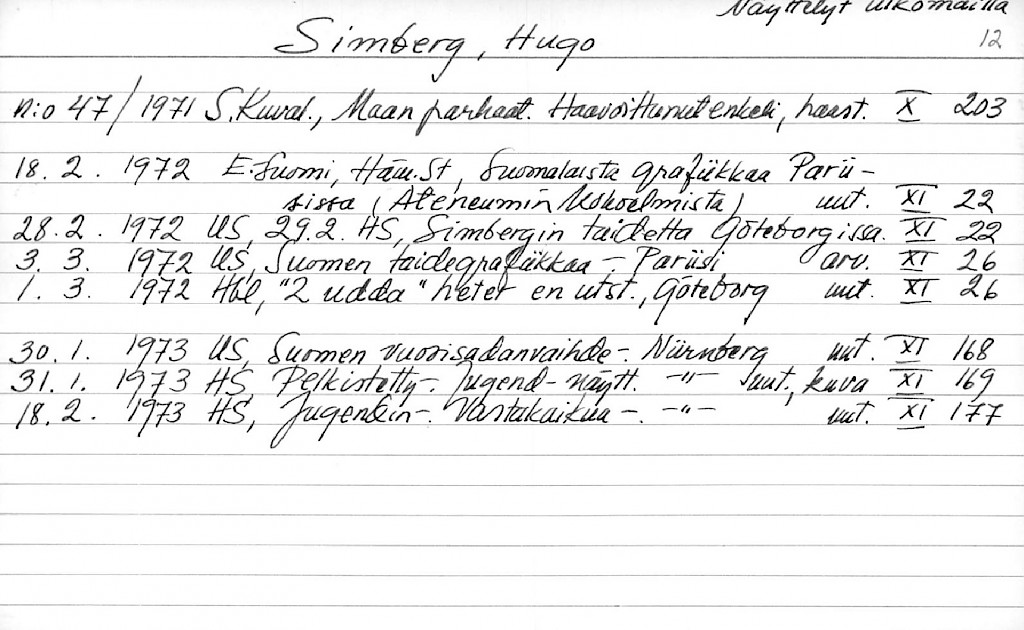 Näyttelyt ulkomailla
Simberg, Hugo 12
n:o 47/1971 S.Kuval., Maan parhaat. Haavoittunut enkeli, haast. X 203
18.2. 1972 E-Suomi, Häm.St, Suomalaista grafiikkaa Parii-
sissa (Ateneumin kokoelmista) uut. XI 22
28.2. 1972 US, 29.2. HS, Simbergin taidetta Göteborgissa. XI 22
3.3. 1972 US, Suomen taidegrafiikkaa -, Pariisi arv. XI 26
1.3. 1972 Hbl, "2 udda" heter en utst., Göteborg uut. XI 26
30.1. 1973 US, Suomen vuosisadanvaihde -. Nürnberg uut. XI 168
31.1. 1973 HS, Pelkistetty -. Jugend-näytt. -"- uut., kuva XI 169
18.2. 1973 HS, Jugendin -. Vastakaikua -. -"- uut. XI 177